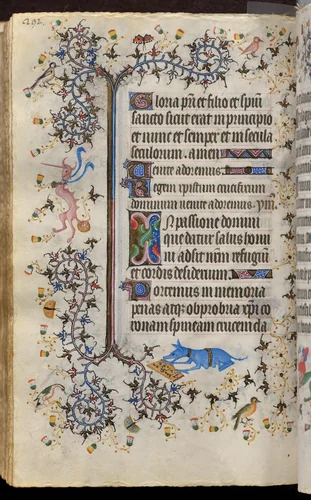 292
Gloria pr̃i et filio et spũi
sancto sicut erat in principio
et nunc et semper et in secula
seculorum. amen
Uenite adoremus
Regem xpistum crucifixum
dominum uenite adoremus. ym̃.
IN passione domini
que datur salus homi
ni adsit nr̃m refugiũ
et cordis desiderium
Portemus in memoria
penas atq; obprobria xp̃i co
ronam spineam crucem cla